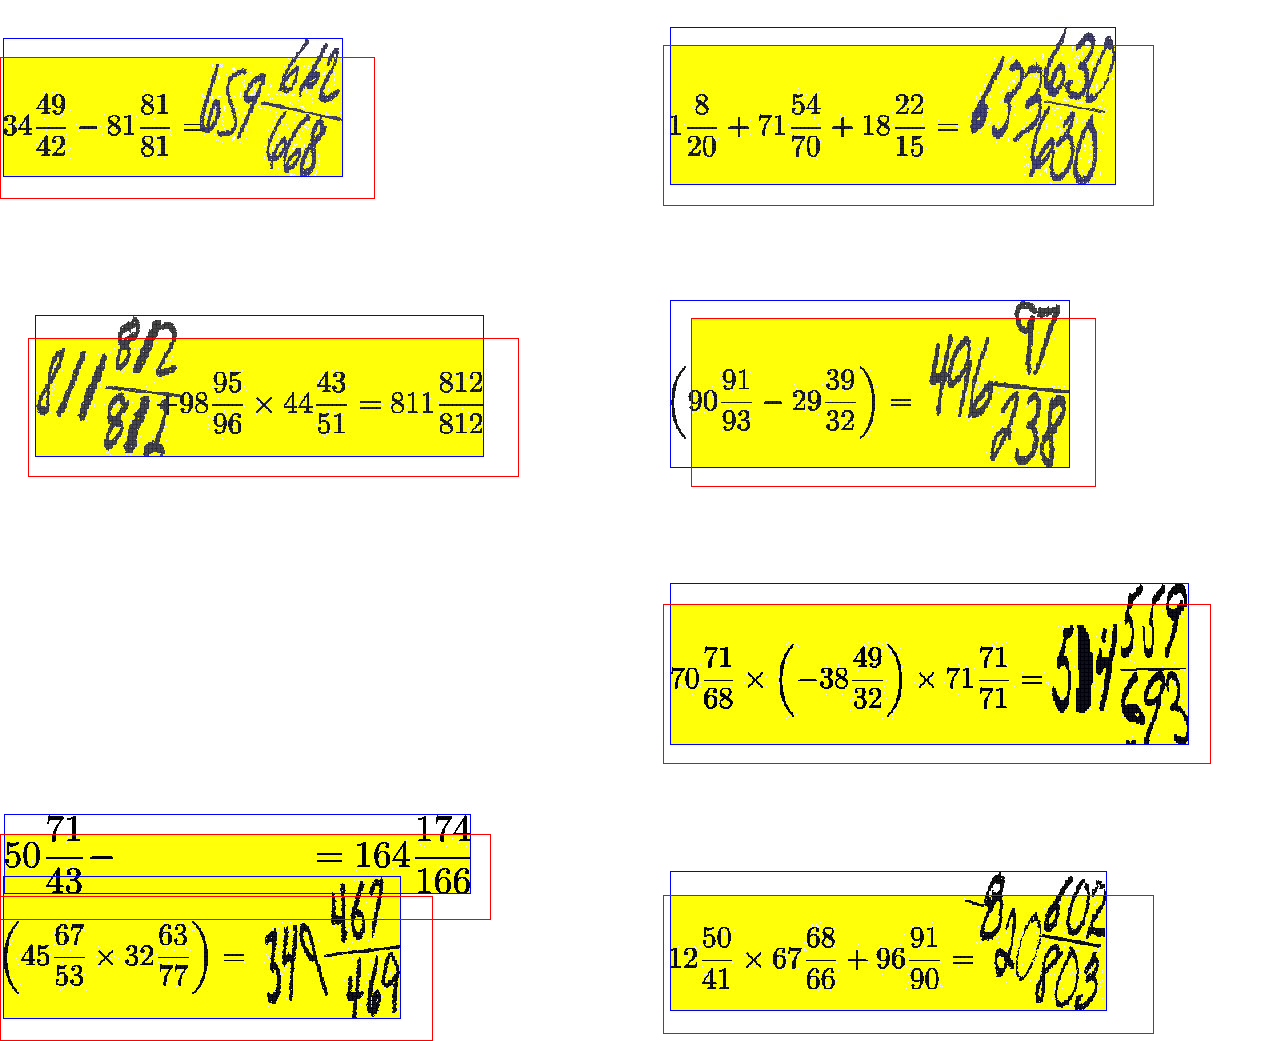 34 49/42 - 81 81/81 = 659 662/668
1 8/20 + 71 54/70 + 18 22/15 = 633 630/630
811 812/812 + 98 95/96 × 44 43/51 = 811 812/812
(90 91/93 - 29 39/32) = 496 97/238
70 71/68 × (-38 49/32) × 71 71/71 = 559/693
50 71/43 - = 164 174/166
(45 67/53 × 32 63/77) = 349 467/469
12 50/41 × 67 68/66 + 96 91/90 = 820 602/803